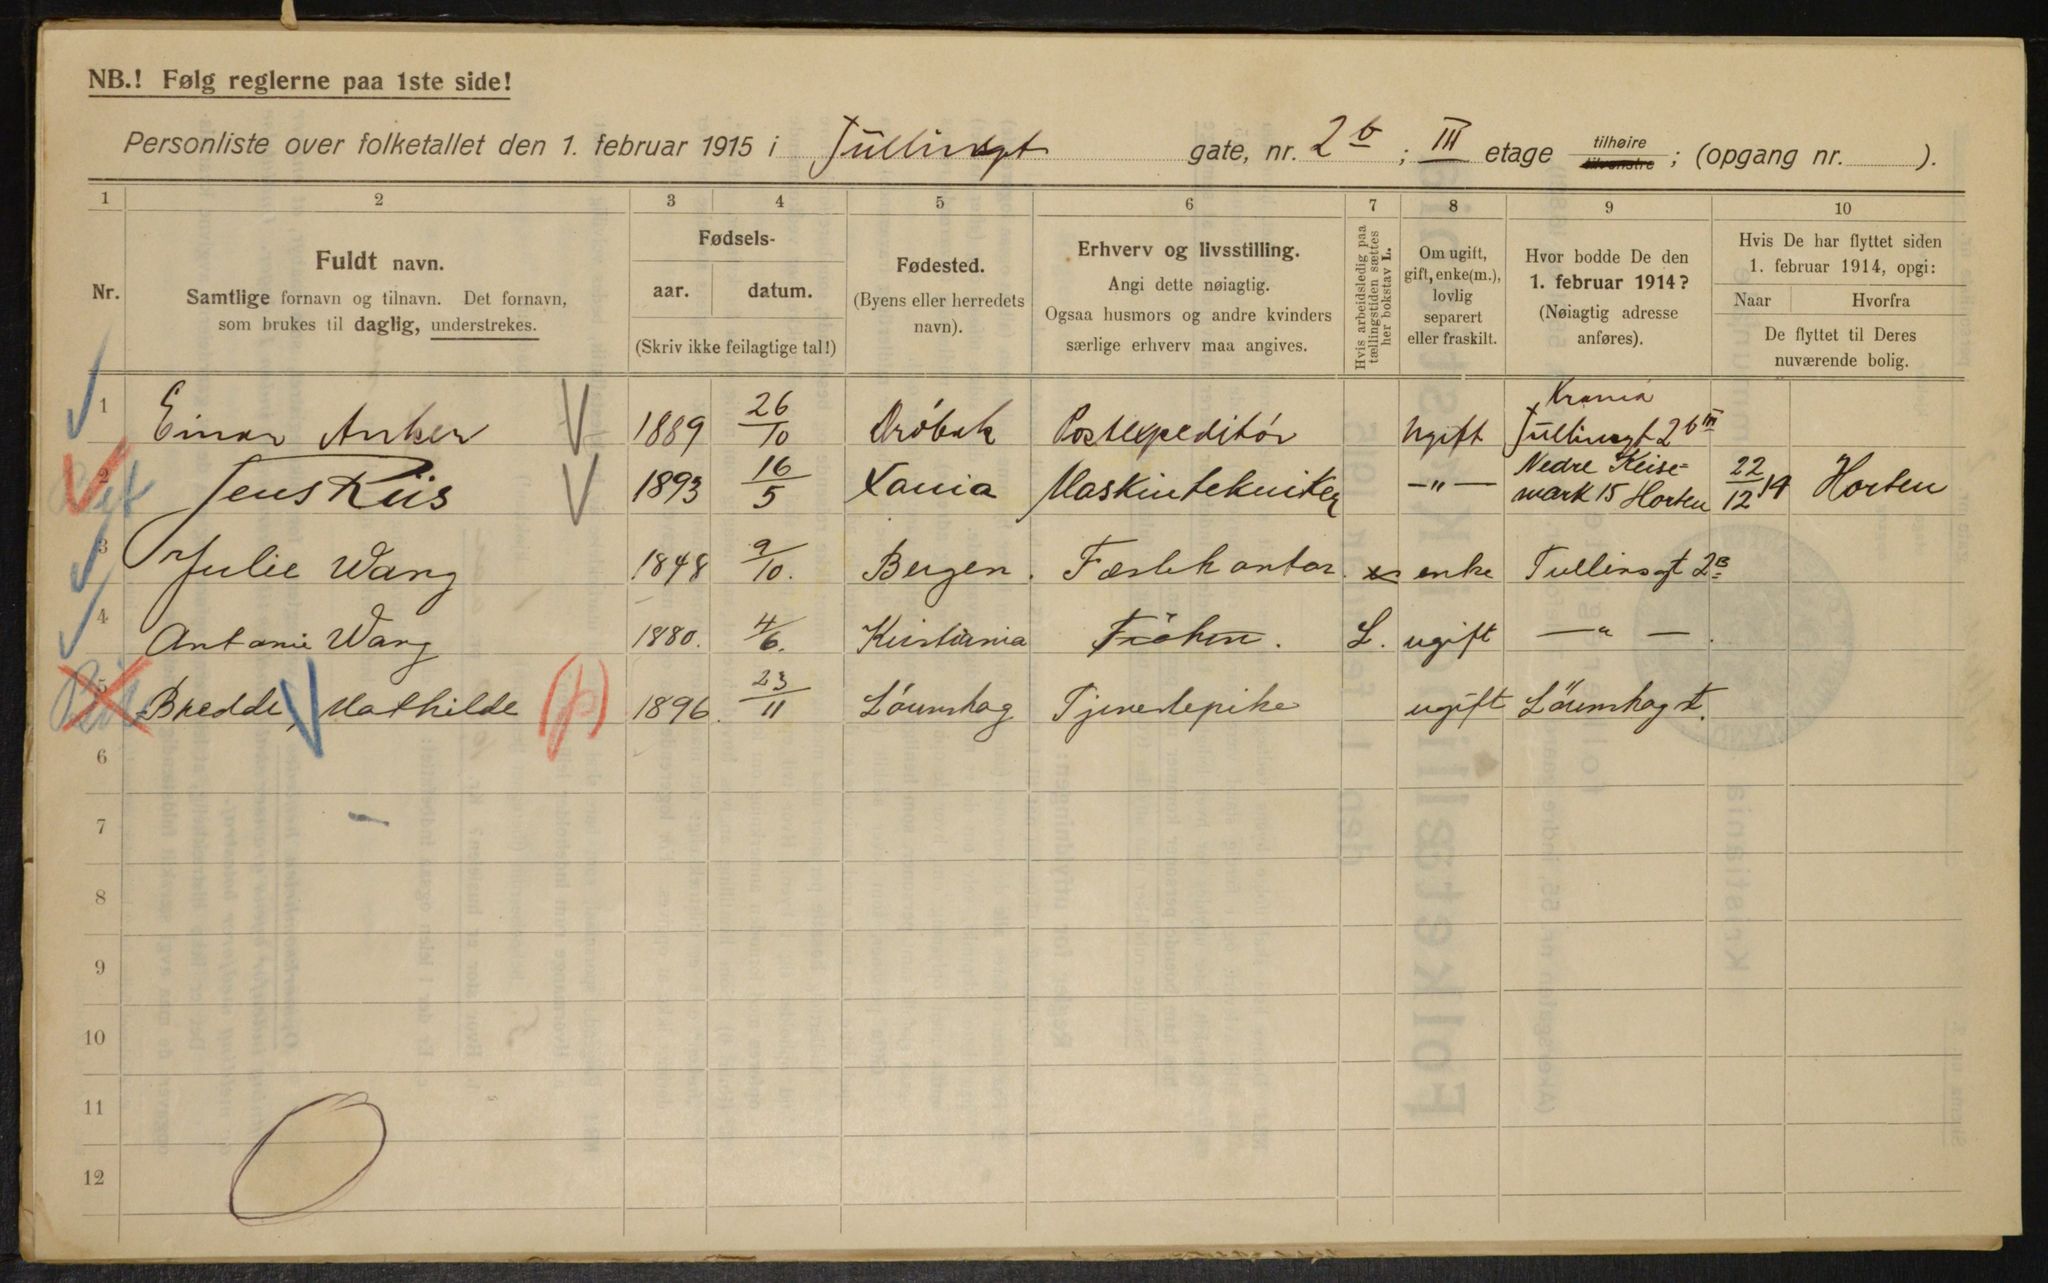 NB.! Følg reglerne paa 1ste side!
Personliste over folketallet den 1. februar 1915 i Tullinsgt gate, nr. 2 b ; III etage tilhøire tilvenstre ; (opgang nr. ).
1 2 3 4 5 6 7 8 9 10
Nr.
Fuldt navn.
Samtlige fornavn og tilnavn. Det fornavn,
som brukes til daglig, understrekes.
Fødsels-
aar. datum.
(Skriv ikke feilagtige tal!)
Fødested.
(Byens eller herredets
navn).
Erhverv og livsstilling.
Angi dette nøiagtig.
Ogsaa husmors og andre kvinders
særlige erhverv maa angives.
Hvis arbeidsledig paa
tællingstiden sættes
her bokstav L.
Om ugift,
gift, enke(m.),
lovlig
separert
eller fraskilt.
Hvor bodde De den
1. februar 1914?
(Nøiagtig adresse
anføres).
Hvis De har flyttet siden
1. februar 1914, opgi:
Naar Hvorfra
De flyttet til Deres
nuværende bolig.
1 Einar Anker 1889 26/10 Drøbak Postexpeditør ugift Krania Tullinsgt 2 b III
2 Jens Riis 1893 16/5 Xania Maskintekniker —"— Nedre Keise-
mark 15 Horten 22/12 14 Horten
3 Julie Wang 1848 9/10. Bergen. Fæstekontor. enke Tullinsgt 2B
4 Antonie Wang 1880. 4/6. Kristiania Frøken. L. ugift —"—.
5 Bredde, Mathilde (f) 1896. 23/11 Lørenskog Tjenestepike ugift Lørenskog
6
7
8
9
10
11
12